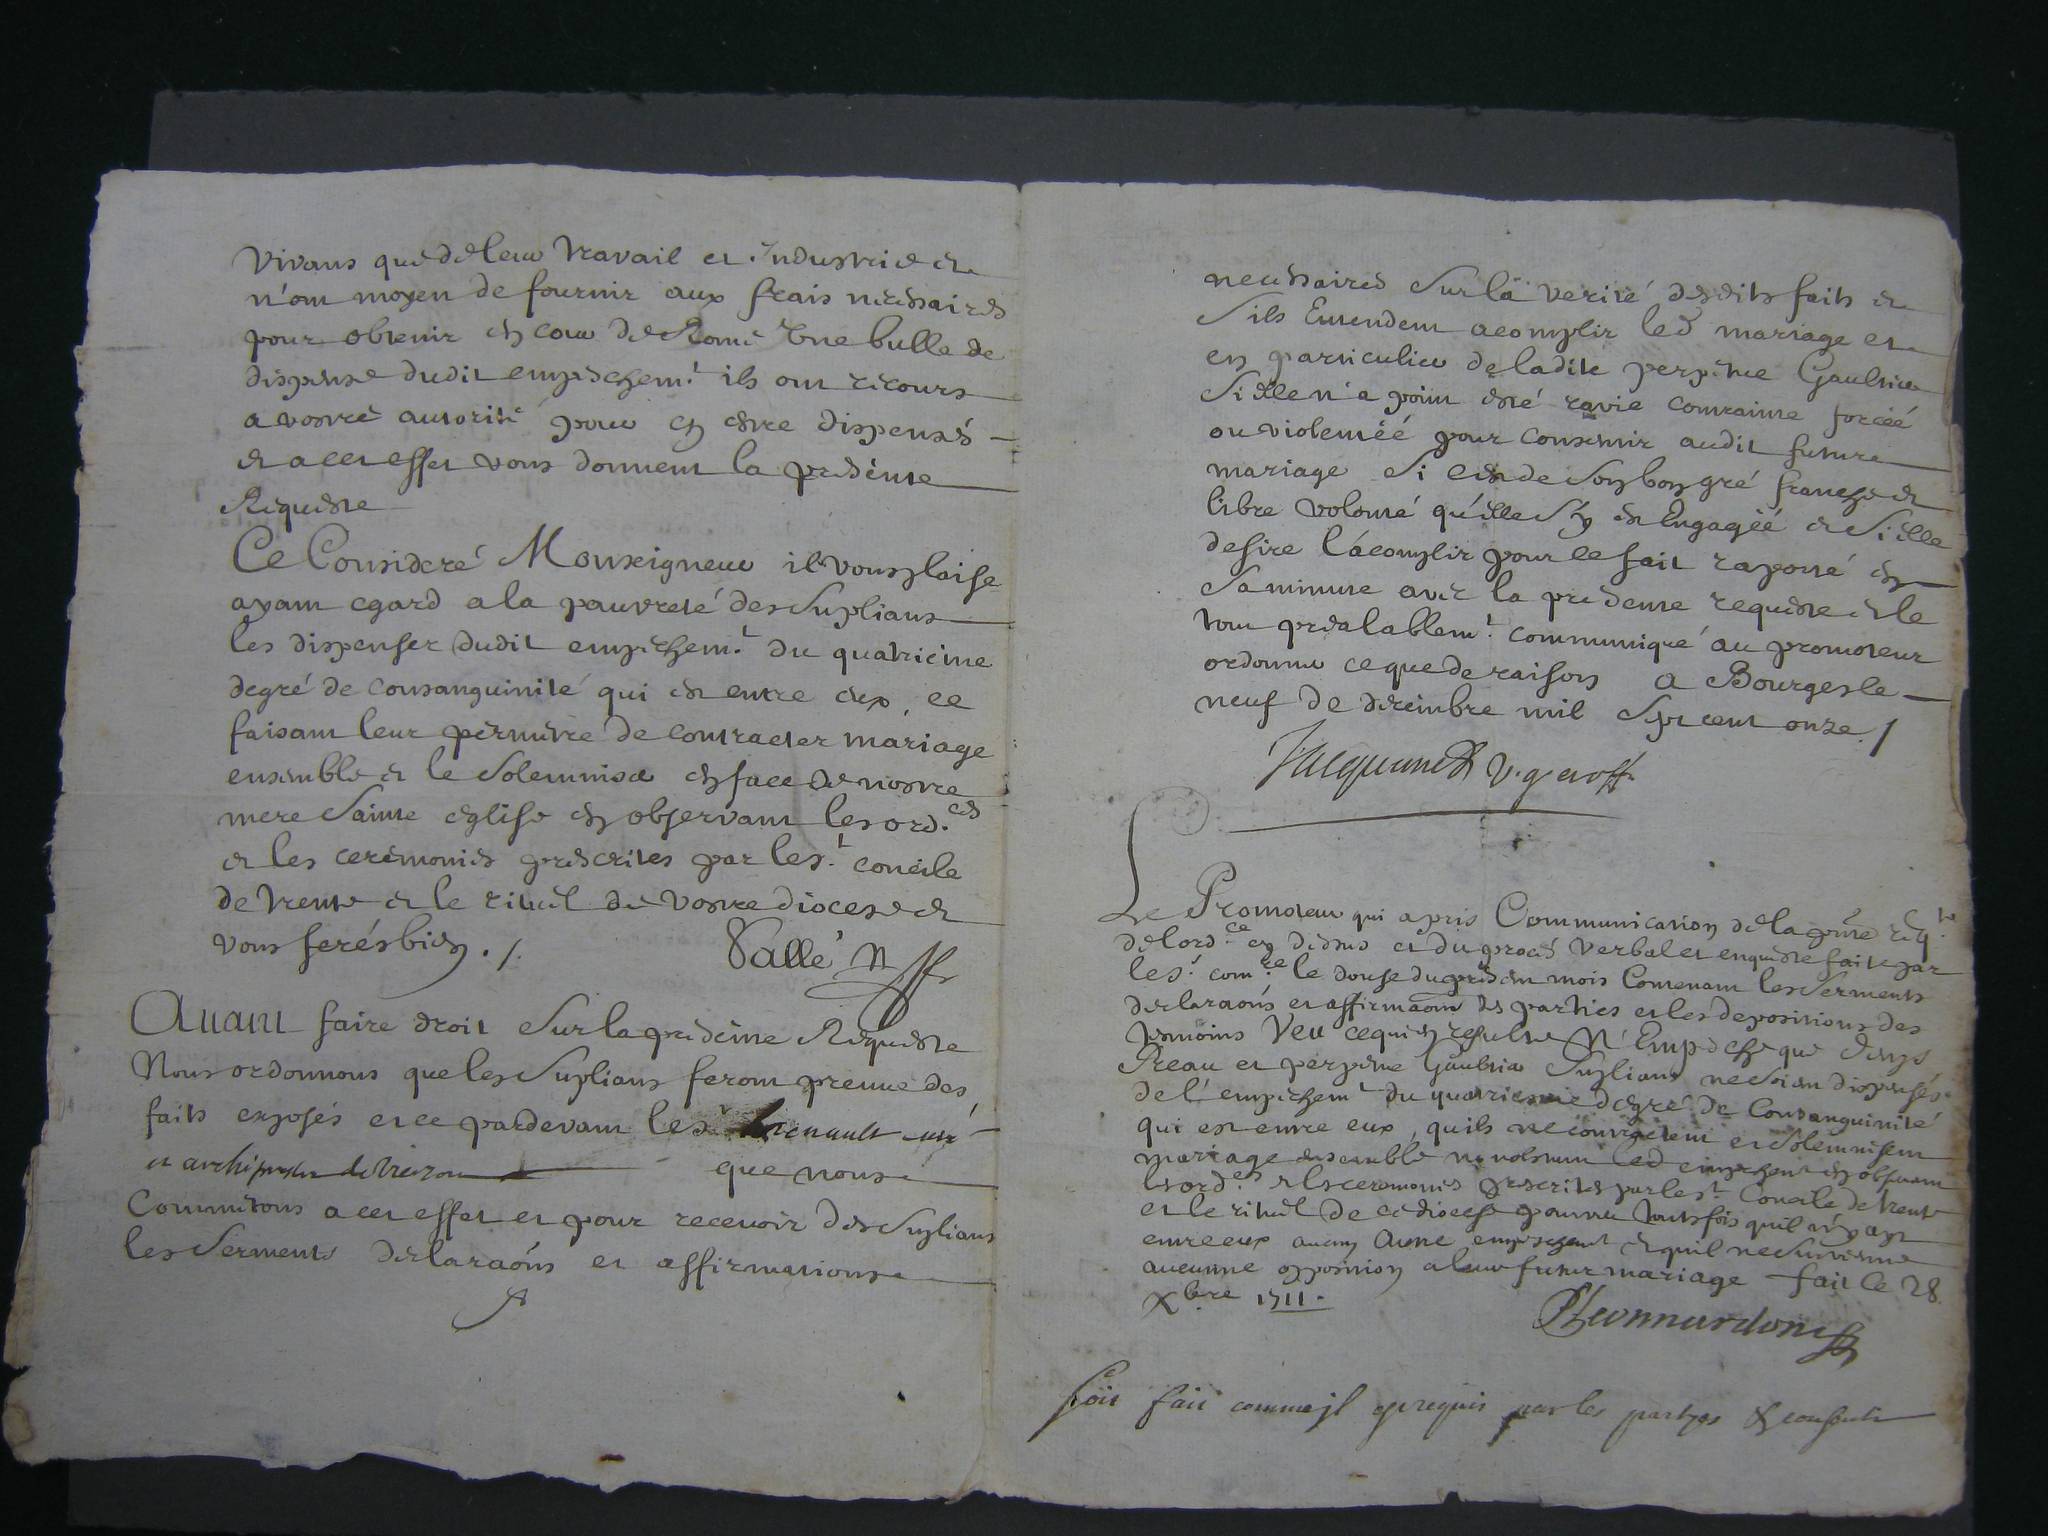 Vivans que de leur travail et Industrie et
n'ont moyen de fournir aux frais nécéssaires
pour obtenir en cour de Rome Une bulle de
dispense dudit empeschem.t ils ont recours
a vostre autorité pour en estre dispensés
et a cet effet vous donnent la presente
Requeste
Ce Consideré Monseigneur il vous plaise
ayant egard a la pauvreté des Suplians
les dispenser dudit empechem.t du quatrieme
degré de consanguinité qui est entre eux, ce
faisant leur permettre de contracter mariage
ensemble et le Solemniser en face de nostre
mere Sainte eglise en observant les ord.ces
et les ceremonies prescrites par le s.t concile
de trente et le rituel de vostre diocese et
vous ferés bien ./.
Vallé N
Auant faire droit Sur la presente Requeste
Nous ordonnons que les Suplians feront preuue des
faits exposés et ce pardevant le s.r curé
et archiprestre de que nous
Commétons a cet effet et pour receuoir des Suplians
les Serments declaraōns et affirmations
necessaires Sur la verité desdits faits et
S'ils Entendent acomplir led mariage et
en particulier de ladite perpétue Gaultier
Si elle n'a point esté ravie contrainte forcéé
ou violentéé pour consentir audit future
mariage Si c'est de Son bon gré franche et
libre volonté qu'elle S'y est Engagéé et Si elle
desire l'acomplir pour ce fait raporté et
Sa minute avec la presente requeste et le
tout préalablem.t communiqué au promoteur
ordonner ce que de raison a Bourges le
neuf de decembre mil Sept cent onze ./
v. g. et off.
Le Promoteur qui a pris Communication de la pnte req.te
de lord.ce en dessus et du procés verbal et enqueste fait par
le s.r com.re le douse du present mois Contenant les Serments
declaraōns et affirmaōns des parties et les depositions des
temoins Veu ce qui en resulte N'Empesche que Denys
Preau et perpetue Gaultier Suplians ne Soient dispensés
de l'empechem.t du quatriesme degré de Consanguinité
qui est entre eux, quils ne contractent et Solemnisent
mariage ensemble nonobstant led empeschent en observant
les ord.ces et les ceremonies prescrites par le s.t Concile de trente
et le rituel de ce diocese pourvu toutesfois quil n'y ayt
entre eux aucun autre empeschement et quil ne Survienne
aucunne opposition a leur futur mariage fait le 28
Xbre 1711.
soit fait comme jl est requis par les partyes et consenti